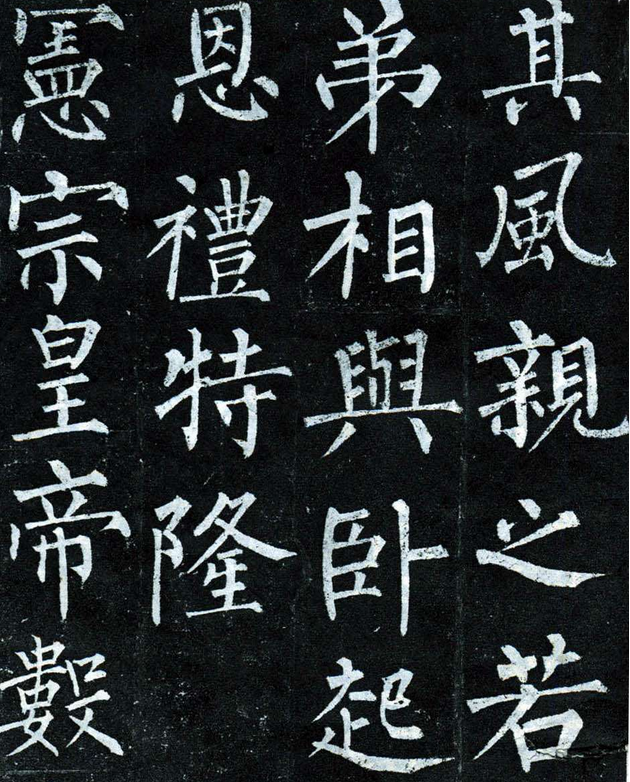 其風親之若
弟相與卧起
恩禮特隆
憲宗皇帝數